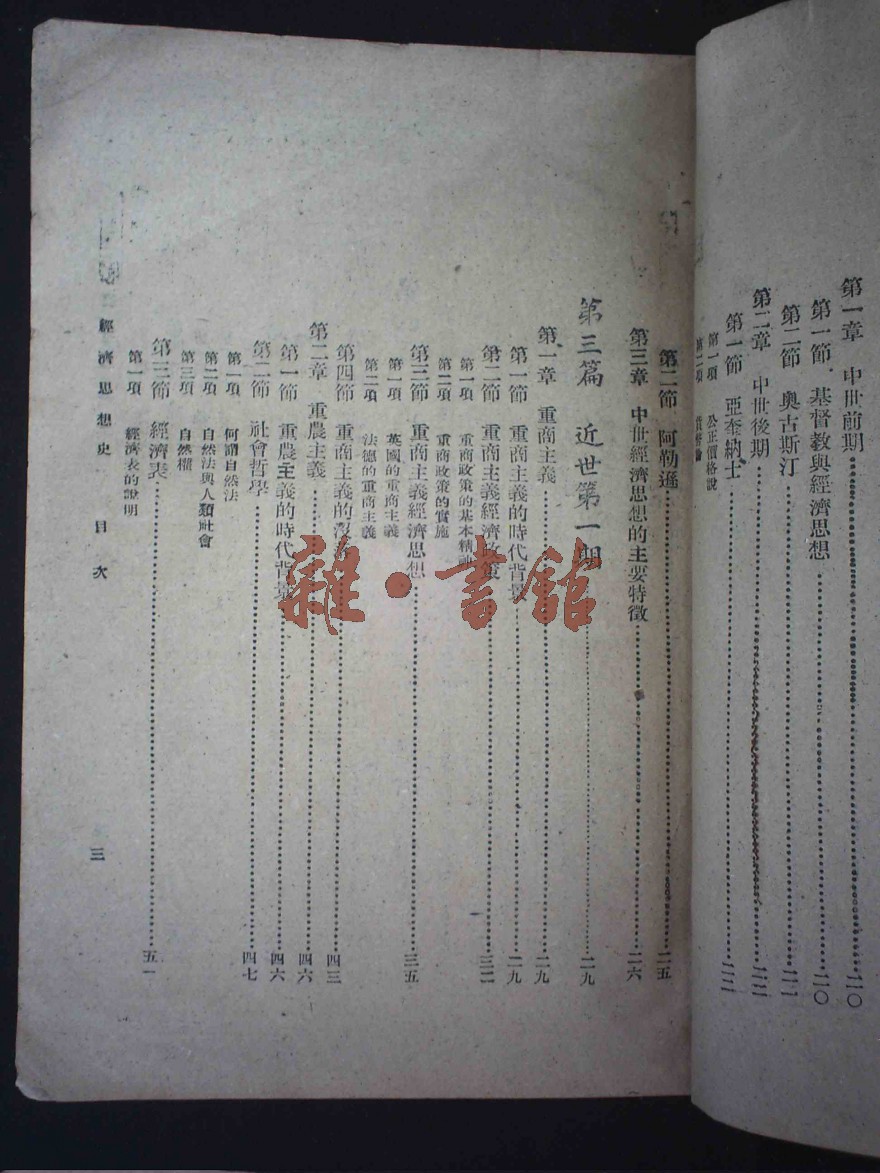 第一章　中世前期………二〇
第一節　基督教與經濟思想………二〇
第二節　奧古斯汀………二一
第二章　中世後期………二二
第一節　亞奎納士………二二
第一項　公正價格說
第二項
第二節　阿勒遜………二五
第三章　中世經濟思想的主要特徵………二六
第三篇　近世第一期………二九
第一章　重商主義………二九
第一節　重商主義的時代背景………二九
第二節　重商主義經濟政策………三二
第一項　重商政策的基本精神
第二項　重商政策的實施
第三節　重商主義經濟思想………三五
第一項　英國的重商主義
第二項　法德的重商主義
第四節　重商主義的沒落………四三
第二章　重農主義………四六
第一節　重農主義的時代背景………四六
第二節　社會哲學………四七
第一項　何謂自然法
第二項　自然法與人類社會
第三項　自然權
第三節　經濟表………五一
第一項　經濟表的說明
經濟思想史　目次
三
雜·書館